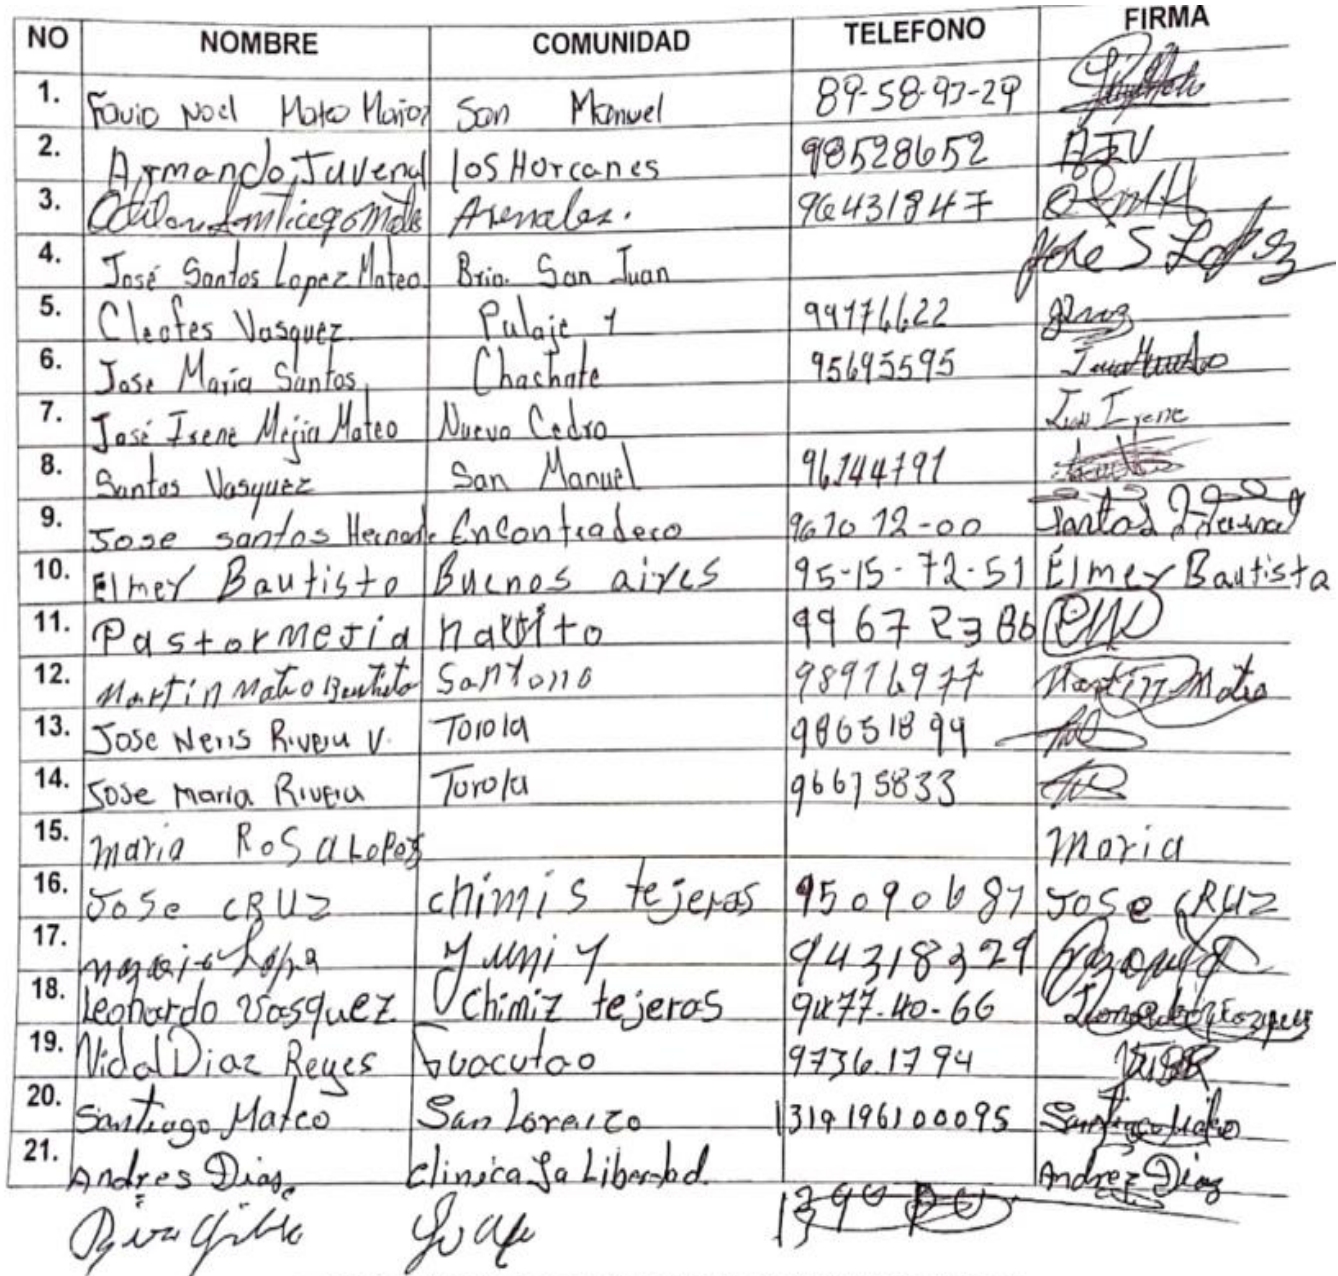 NO NOMBRE COMUNIDAD TELEFONO FIRMA
1. Favio Noel Mateo Muñoz San Manuel 89-58-93-29
2. Armando Juvenal los Horcones 98528652 AJV
3. Arenales. 96431847
4. José Santos Lopez Mateo Brio. San Juan José S Lopez
5. Cleofes Vasquez. Pulaje 1 99176622
6. Jose Maria Santos Chachate 95695595
7. José Irene Mejia Mateo Nuevo Cedro Irene
8. Santos Vasquez San Manuel 96144791
9. Jose santos Hernande Encontradero 967072-00 Santos
10. Elmer Bautisto Buenos aires 95-15-72-51 Elmer Bautista
11. Pastor mejia 99672386
12. Martin Mateo Bautista Santono 98916977 Martin Mateo
13. Jose Neris Rivera V. Torola 98651899
14. Jose maria Rivera Torola 96675833
15. maria RoSa LopeZ maria
16. JoSe CRUZ chimis tejeras 95090687 JOSe CRUZ
17. 94318329
18. Leonardo Vasquez. Chimiz tejeras 9477-40-66
19. Vidal Diaz Reyes Guacutao 9736.1794
20. Santiago Mateo San Lorenzo 1319196100095 Santiago Mateo
21. Andres Dias. Clinica La Libertad. Andrez Diaz